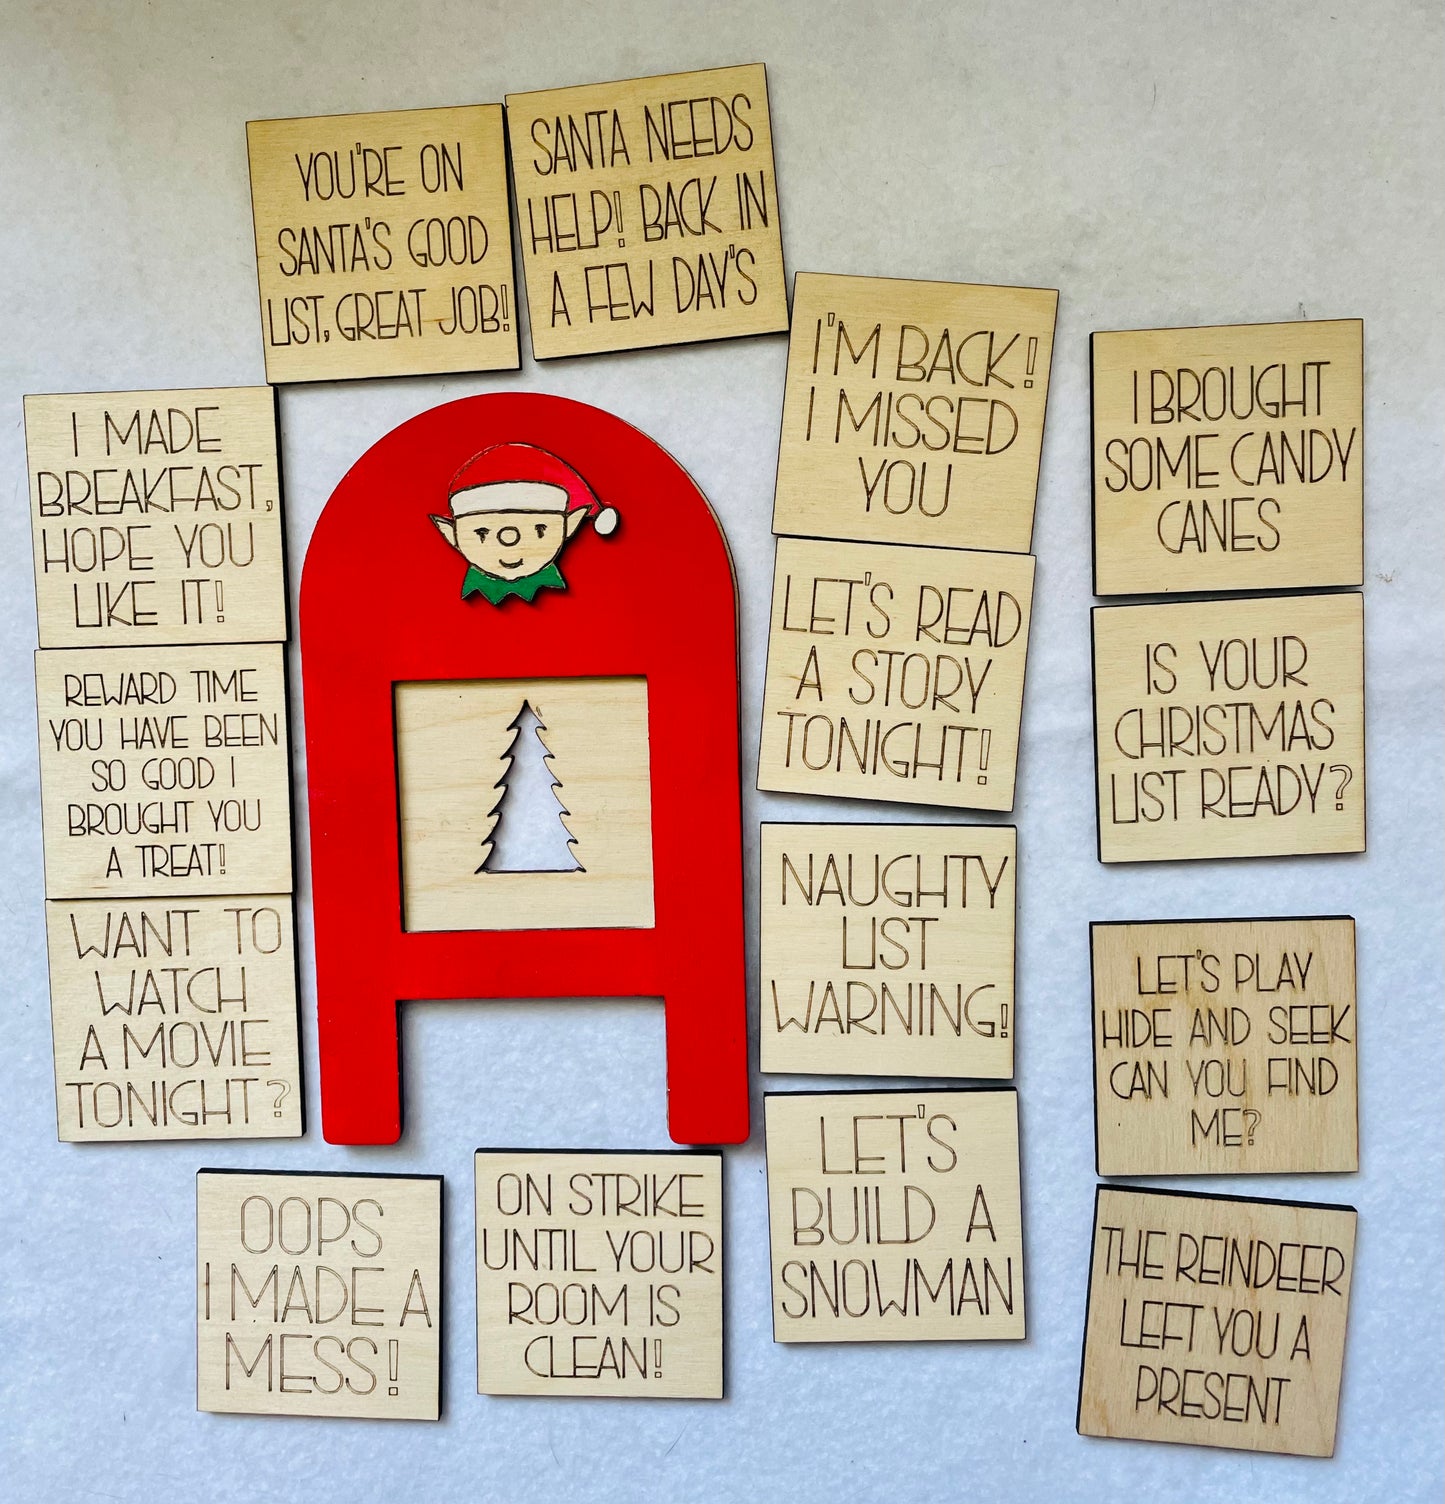 YOU'RE ON
SANTA'S GOOD
LIST, GREAT JOB!
SANTA NEEDS
HELP! BACK IN
A FEW DAY'S
I'M BACK!
I MISSED
YOU
I BROUGHT
SOME CANDY
CANES
I MADE
BREAKFAST,
HOPE YOU
LIKE IT!
LET'S READ
A STORY
TONIGHT!
IS YOUR
CHRISTMAS
LIST READY?
REWARD TIME
YOU HAVE BEEN
SO GOOD I
BROUGHT YOU
A TREAT!
NAUGHTY
LIST
WARNING!
WANT TO
WATCH
A MOVIE
TONIGHT?
LET'S PLAY
HIDE AND SEEK
CAN YOU FIND
ME?
OOPS
I MADE A
MESS!
ON STRIKE
UNTIL YOUR
ROOM IS
CLEAN!
LET'S
BUILD A
SNOWMAN
THE REINDEER
LEFT YOU A
PRESENT